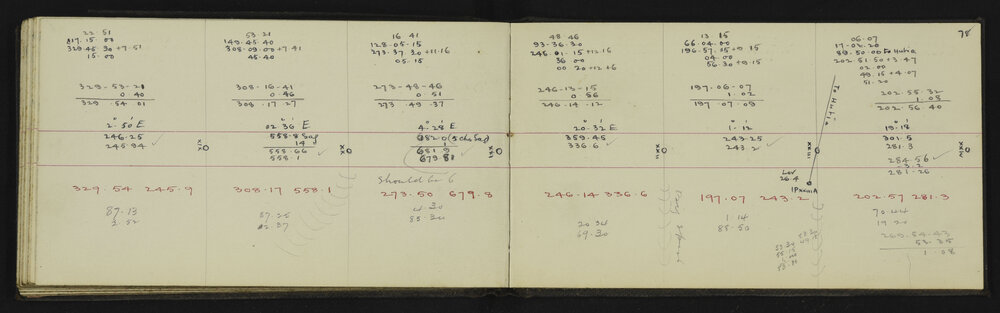 22.51
117.15.00
329.45.30 +7.51
15.00
329-53-21
0 40
329.54.01
2° 50' E
246.25
245.94
329.54 245.9
87.13
2.52
53.21
149.45.40
308.09.00 +7.41
45.40
308-16-41
0.46
308.17.27
02° 36' E
558.8 Sag
14
558.66
558.1
308.17 558.1
87.25
16.41
128.05.15
273.37.30 +11.16
05.15
273-48-46
0 51
273.49.37
4° 28' E
682.0 (5 chs Sag)
1
681.9
679.81
Should be 6
273.50 679.8
4.30
85.30
48.46
93.36.30
246.01.15 +12.16
36 00
00 20 +12 +6
246-13-15
0 56
246.14.12
20° 32' E
359.45
336.6
246.14 336.6
20.34
69.30
13 15
66.04.00
196.57.15 +9.15
04.00
56.30 +9.15
197.06.07
1.02
197.07.09
1° 12'
243.25
243.2
197.07 243.2
1.14
88.50
To Huhia
26.4
78
06.07
17.02.20
89.50.00 To Huhia
202.51.50 +3.47
02.00
49.15 +4.07
51.20
202.55.32
1.08
202.56 40
19° 18'
301.5
281.3
284.56
3.2
281.26
202.57 281.3
70.44
19.20
53.35
1.08